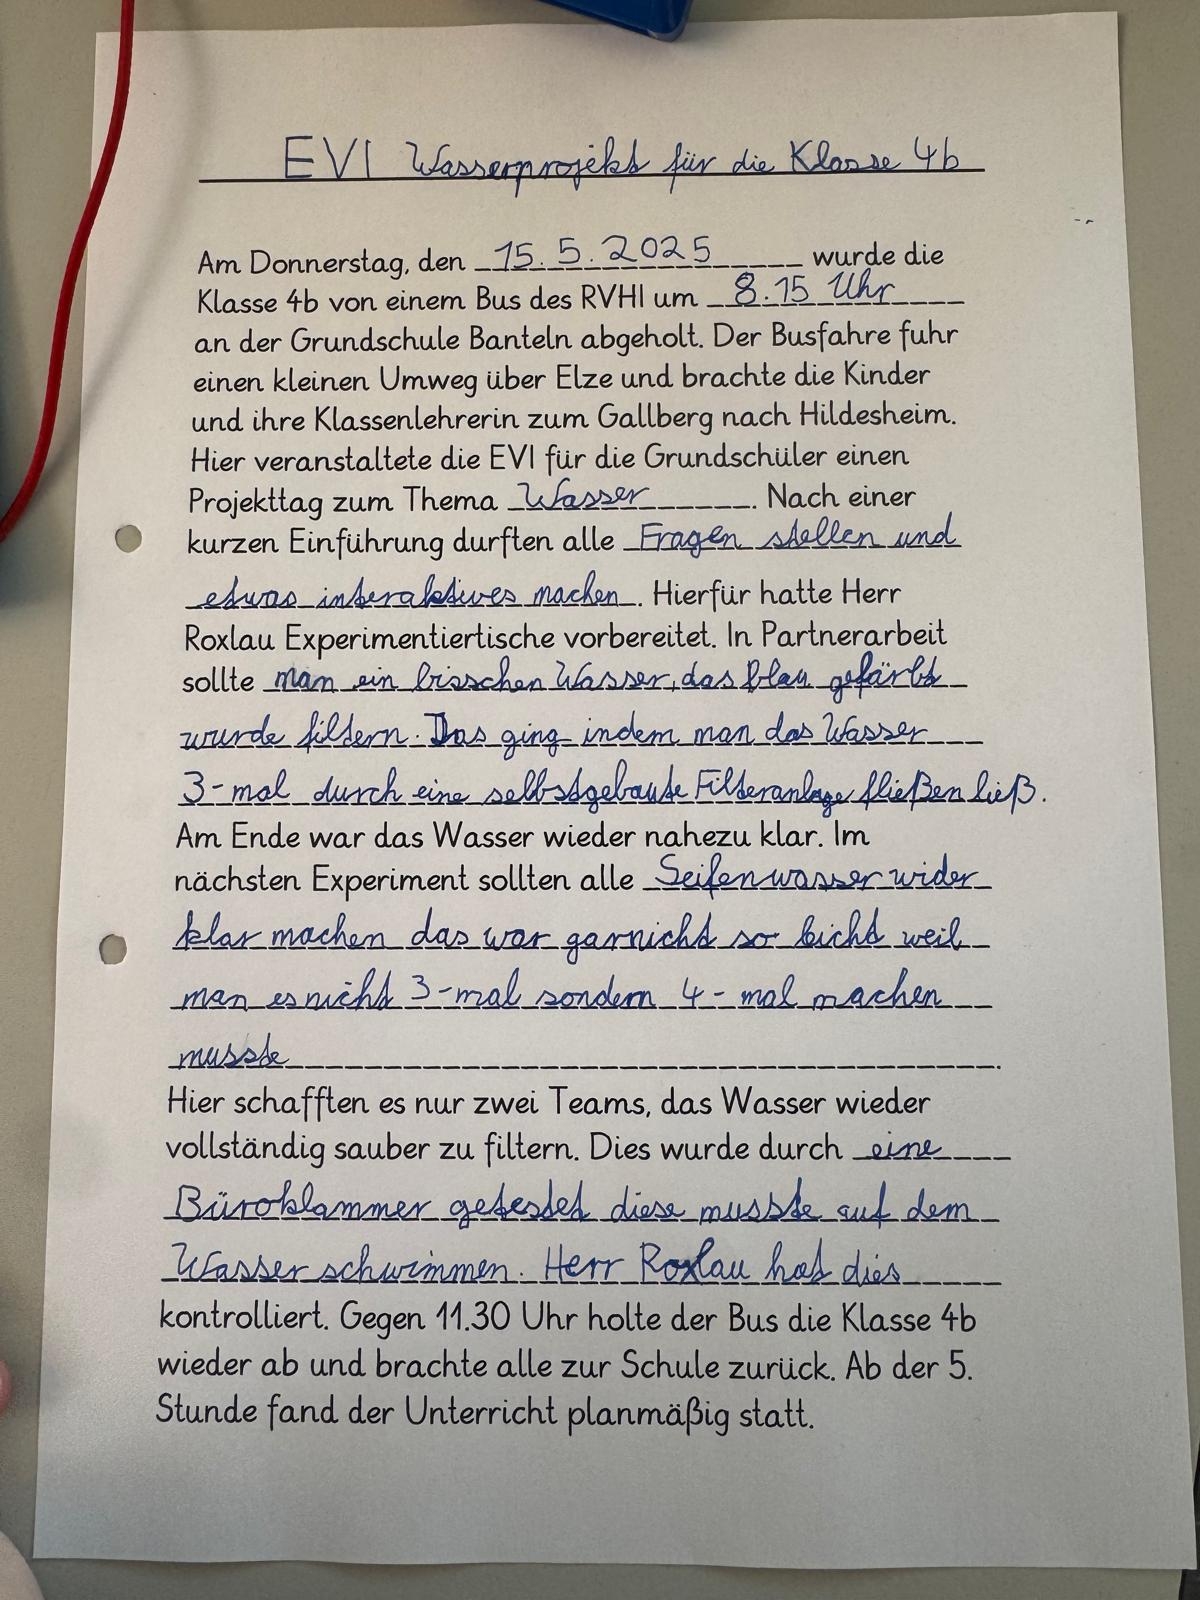 EVI Wasserprojekt für die Klasse 4b
Am Donnerstag, den 15.5.2025 wurde die
Klasse 4b von einem Bus des RVHI um 8.15 Uhr
an der Grundschule Banteln abgeholt. Der Busfahre fuhr
einen kleinen Umweg über Elze und brachte die Kinder
und ihre Klassenlehrerin zum Gallberg nach Hildesheim.
Hier veranstaltete die EVI für die Grundschüler einen
Projekttag zum Thema Wasser. Nach einer
kurzen Einführung durften alle Fragen stellen und
etwas interaktives machen. Hierfür hatte Herr
Roxlau Experimentiertische vorbereitet. In Partnerarbeit
sollte man ein bisschen Wasser, das blau gefärbt
wurde filtern. Das ging indem man das Wasser
3-mal durch eine selbstgebaute Filteranlage fließen ließ.
Am Ende war das Wasser wieder nahezu klar. Im
nächsten Experiment sollten alle Seifenwasser wider
klar machen das war garnicht so leicht weil
man es nicht 3-mal sondern 4-mal machen
musste.
Hier schafften es nur zwei Teams, das Wasser wieder
vollständig sauber zu filtern. Dies wurde durch eine
Büroklammer getestet diese musste auf dem
Wasser schwimmen. Herr Roxlau hat dies
kontrolliert. Gegen 11.30 Uhr holte der Bus die Klasse 4b
wieder ab und brachte alle zur Schule zurück. Ab der 5.
Stunde fand der Unterricht planmäßig statt.